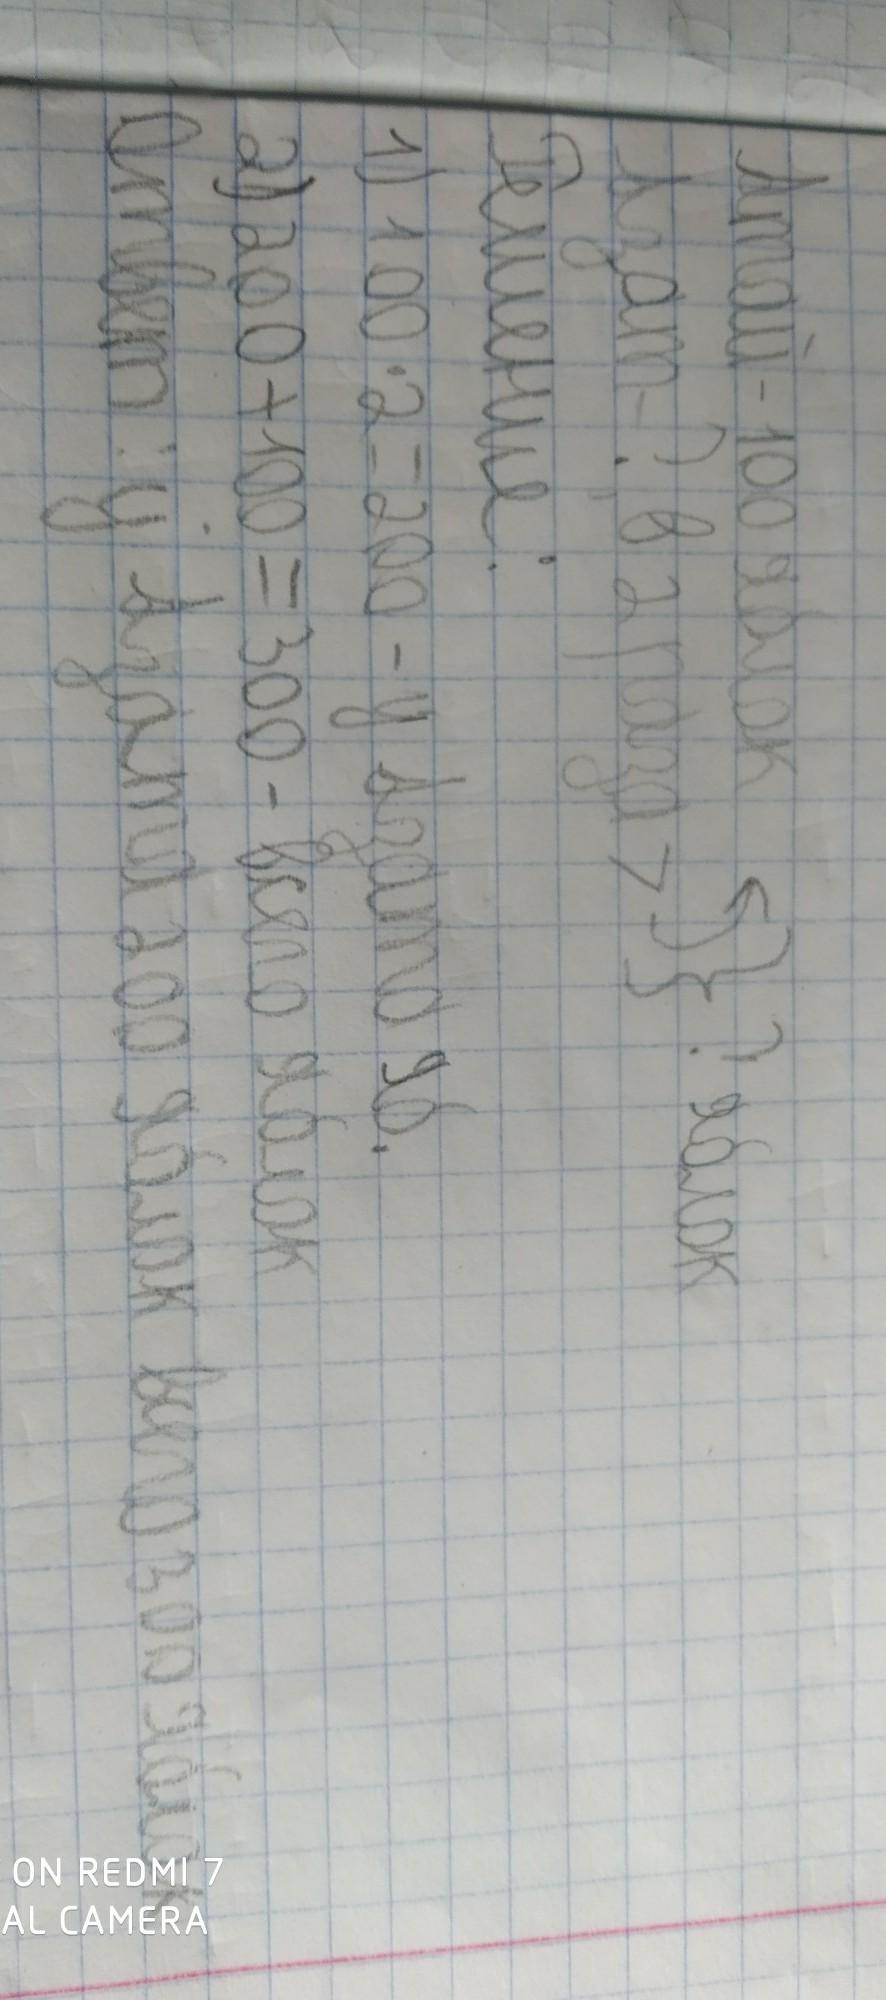 Атай - 100 яблок
Азат - ?, в 2 раза > } ? яблок
Решение:
1) 100·2=200 - у Азата яб.
2) 200+100=300 - всего яблок
Ответ: у Азата 200 яблок всего 300 яблок
ON REDMI 7
AL CAMERA